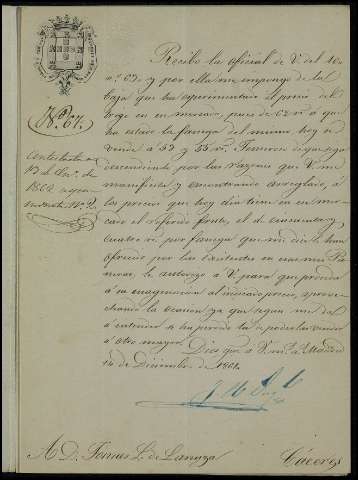 Nº 67.
Contestada en
Recibo la oficial de V. del 10
nº 62 y por ella me impongo de la
baja que ha experimentado el precio del
trigo en ese mercado, pues de 62 rs. á que
ha estado la fanega del mismo hoy se
vende á 53 y 55 rs. Temeroso de que siga
descendiendo por las razones que V. me
manifiesta y encontrando arreglado, á
los precios que hoy dia tiene en ese mer-
cado el referido fruto, el de cincuenta y
cuatro rs. por fanega que me dice le han
ofrecido por las existentes en esa mi Pa-
nera, le autorizo á V. para que proceda
á su enagenacion al indicado precio, aprove-
chando la ocasion ya que segun me da
á entender se ha perdido la de poderlas vender
á otro mayor. Dios gue. á V. ms. as. Madrid
14 de Diciembre de 1861.
A D. Tomas L. de Lanyza Cáceres